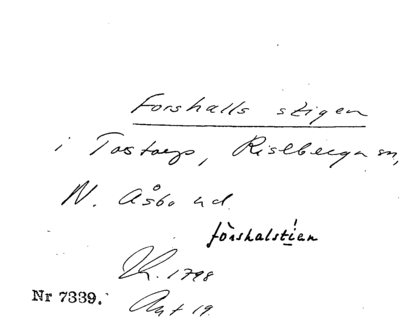 Forshalls stigen
i Tostarp, Riseberga sn,
N. Åsbo hd.
förshalstien
Kr. 1798
Nr 7339. Akt 19.